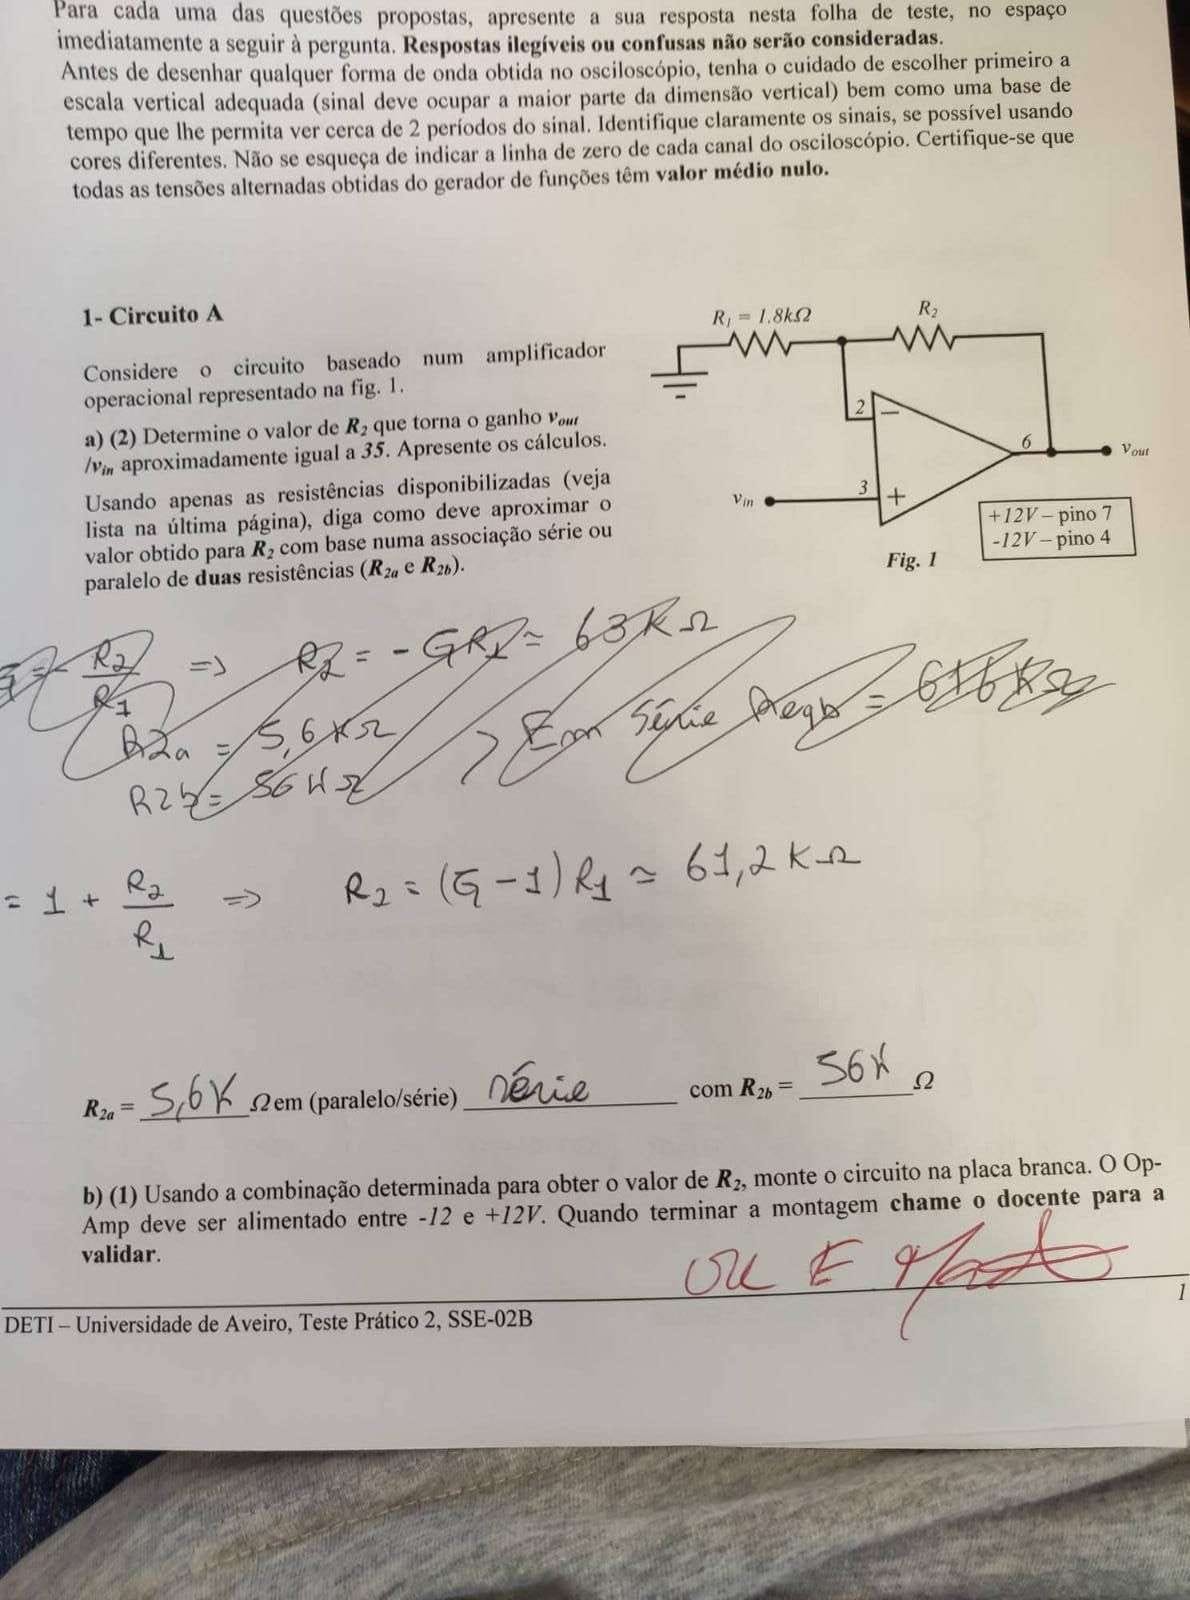 Para cada uma das questões propostas, apresente a sua resposta nesta folha de teste, no espaço
imediatamente a seguir à pergunta. Respostas ilegíveis ou confusas não serão consideradas.
Antes de desenhar qualquer forma de onda obtida no osciloscópio, tenha o cuidado de escolher primeiro a
escala vertical adequada (sinal deve ocupar a maior parte da dimensão vertical) bem como uma base de
tempo que lhe permita ver cerca de 2 períodos do sinal. Identifique claramente os sinais, se possível usando
cores diferentes. Não se esqueça de indicar a linha de zero de cada canal do osciloscópio. Certifique-se que
todas as tensões alternadas obtidas do gerador de funções têm valor médio nulo.
1- Circuito A
Considere o circuito baseado num amplificador
operacional representado na fig. 1.
a) (2) Determine o valor de R2 que torna o ganho vout
/vin aproximadamente igual a 35. Apresente os cálculos.
Usando apenas as resistências disponibilizadas (veja
lista na última página), diga como deve aproximar o
valor obtido para R2 com base numa associação série ou
paralelo de duas resistências (R2a e R2b).
R1 = 1.8kΩ
R2
2
−
6
vout
vin
3
+
+12V – pino 7
-12V – pino 4
Fig. 1
R2/R1 => R2 = - GR1 ≃ 63KΩ
R2a = 5,6KΩ
R2b = 56KΩ
> Em Série
= 1 + R2/R1 => R2 = (G - 1) R1 ≃ 61,2KΩ
R2a = 5,6K Ω em (paralelo/série) série com R2b = 56K Ω
b) (1) Usando a combinação determinada para obter o valor de R2, monte o circuito na placa branca. O Op-
Amp deve ser alimentado entre -12 e +12V. Quando terminar a montagem chame o docente para a
validar.
1
DETI – Universidade de Aveiro, Teste Prático 2, SSE-02B